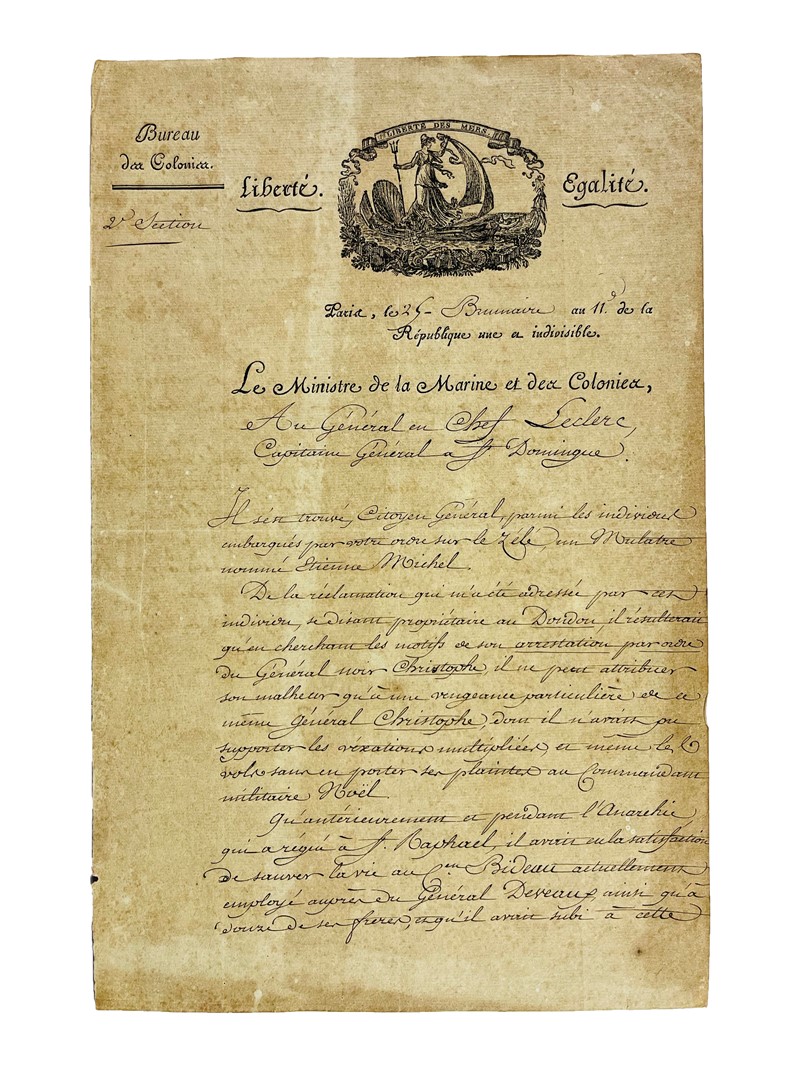 Bureau
des Colonies.
2e Section
LIBERTÉ DES MERS
Liberté.
Egalité.
Paris, le 25 Brumaire an 11e de la
République une et indivisible.
Le Ministre de la Marine et des Colonies,
Au Général en Chef Leclerc,
Capitaine Général à St Domingue.
Il s'est trouvé, Citoyen Général, parmi les individus
embarqués par votre ordre sur le Zélé, un Mulatre
nommé Etienne Michel.
De la réclamation qui m'a été adressée par cet
individu, se disant propriétaire au Dondon il résulterait
qu'en cherchant les motifs de son arrestation par ordre
du Général noir Christophe, il ne peut attribuer
son malheur qu'à une vengeance particulière de ce
même Général Christophe, dont il n'avait pu
supporter les véxations multipliées et même les
vols sans en porter ses plaintes au Commandant
militaire Noël.
Qu'antérieurement et pendant l'Anarchie
qui a régné à St. Raphael, il avait eu la satisfaction
de sauver la vie au Cen Bideau actuellement
employé auprès du Général Deveaux, ainsi qu'à
douze de ses frères, et qu'il avait subi à cette